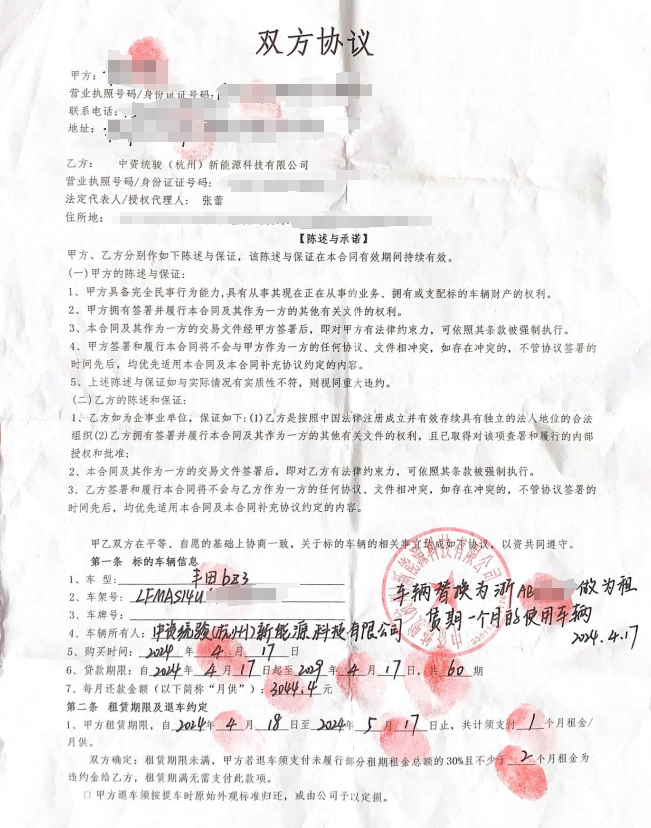 双方协议
甲方:
营业执照号码/身份证证号码:
联系电话:
地址:
乙方: 中资统骏(杭州)新能源科技有限公司
营业执照号码/身份证证号码:
法定代表人/授权代理人: 张蕾
住所地:
【陈述与承诺】
甲方、乙方分别作如下陈述与保证,该陈述与保证在本合同有效期间持续有效。
(一)甲方的陈述与保证:
1、甲方具备完全民事行为能力,具有从事其现在正在从事的业务、拥有或支配标的车辆财产的权利。
2、甲方拥有签署并履行本合同及其作为一方的其他有关文件的权利。
3、本合同及其作为一方的交易文件经甲方签署后,即对甲方有法律约束力,可依照其条款被强制执行。
4、甲方签署和履行本合同将不会与甲方作为一方的任何协议、文件相冲突,如存在冲突的,不管协议签署的
时间先后,均优先适用本合同及本合同补充协议约定的内容。
5、上述陈述与保证如与实际情况有实质性不符,则视同重大违约。
(二)乙方的陈述和保证:
1、乙方如为企事业单位,保证如下:(1)乙方是按照中国法律注册成立并有效存续具有独立的法人地位的合法
组织(2)乙方拥有签署并履行本合同及其作为一方的其他有关文件的权利,且已取得对该项查署和履行的内部
授权和批准;
2、本合同及其作为一方的交易文件签署后,即对乙方有法律约束力,可依照其条款被强制执行。
3、乙方签署和履行本合同将不会与乙方作为一方的任何协议、文件相冲突,如存在冲突的,不管协议签署的
时间先后,均优先适用本合同及本合同补充协议约定的内容。
甲乙双方在平等、自愿的基础上协商一致,关于标的车辆的相关事宜达成如下协议,以资共同遵守。
第一条 标的车辆信息
1、车 型: 丰田bz3
2、车架号: LFMAS14U
3、车牌号:
车辆替换为浙AB 做为租
赁期一个月的使用车辆
2024.4.17
4、车辆所有人: 中资统骏(杭州)新能源科技有限公司
5、购买时间: 2024 年 4 月 17 日
6、贷款期限: 自 2024 年 4 月 17 日起至 2029 年 4 月 17 日,共 60 期
7、每月还款金额(以下简称“月供”): 3044.4 元
第二条 租赁期限及退车约定
1、甲方租赁期限,自 2024 年 4 月 18 日至 2024 年 5 月 17 日止,共计须支付 1 个月租金/
月供。
双方确定:租赁期限未满,甲方若退车须支付未履行部分租期租金总额的30%且不少于 2 个月租金为
违约金给乙方,租赁期满无需支付此款项。
□ 甲方退车须按提车时原始外观标准归还,或由公司予以定损。